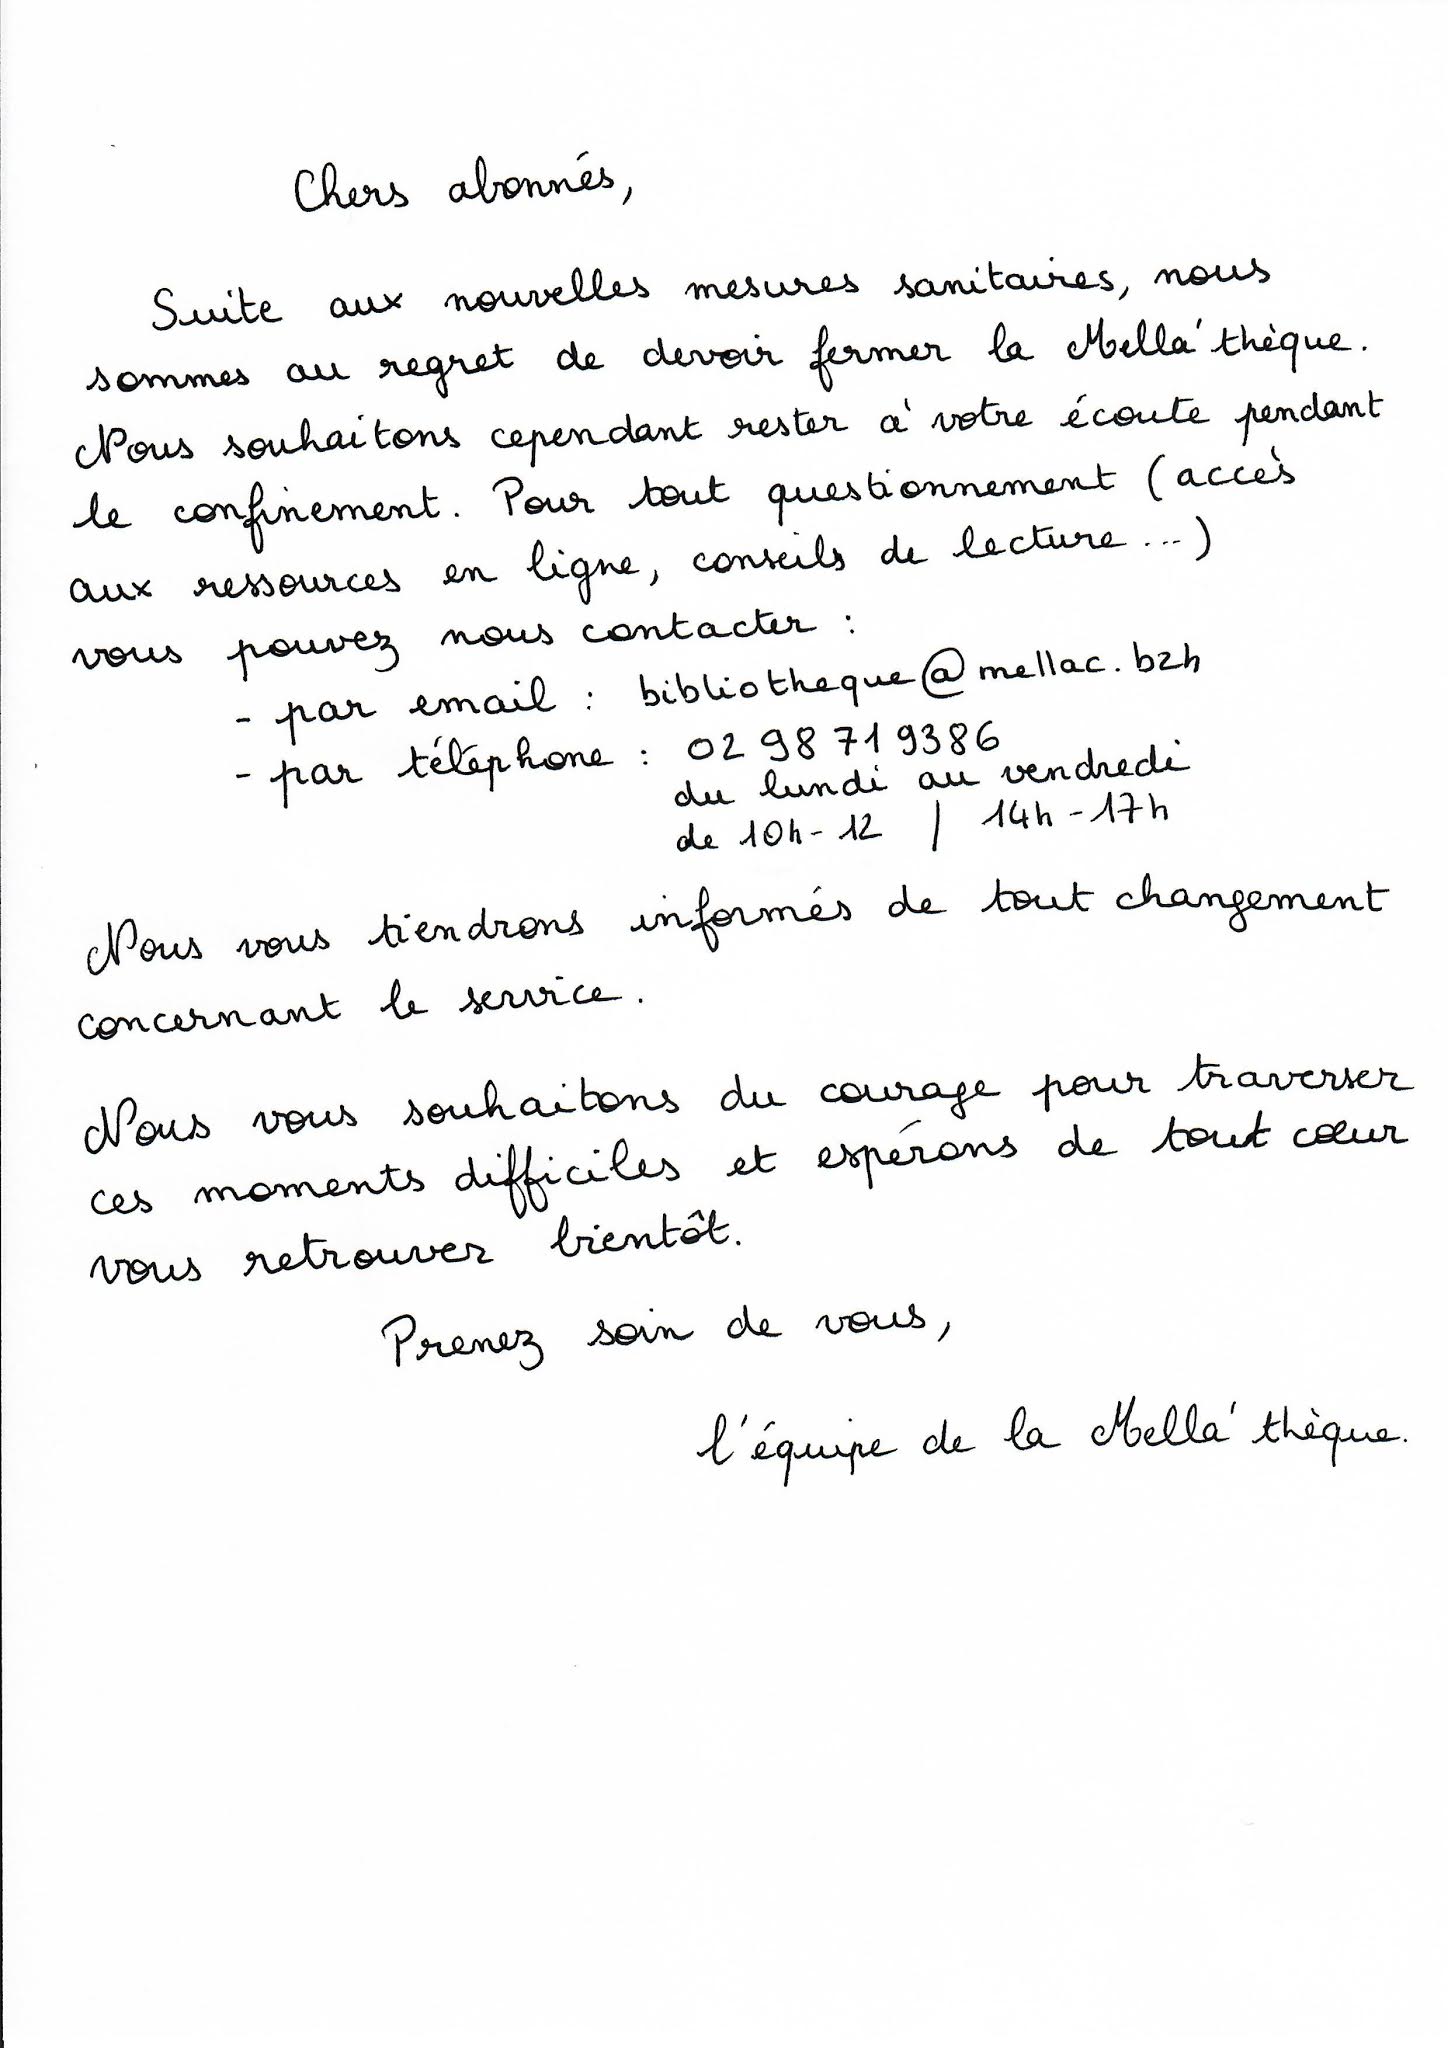 Chers abonnés,
Suite aux nouvelles mesures sanitaires, nous
sommes au regret de devoir fermer la Mella'thèque.
Nous souhaitons cependant rester à votre écoute pendant
le confinement. Pour tout questionnement (accès
aux ressources en ligne, conseils de lecture...)
vous pouvez nous contacter :
- par email : bibliotheque@mellac.bzh
- par téléphone : 02 98 71 93 86
du lundi au vendredi
de 10h-12 / 14h-17h
Nous vous tiendrons informés de tout changement
concernant le service.
Nous vous souhaitons du courage pour traverser
ces moments difficiles et espérons de tout cœur
vous retrouver bientôt.
Prenez soin de vous,
l'équipe de la Mella'thèque.